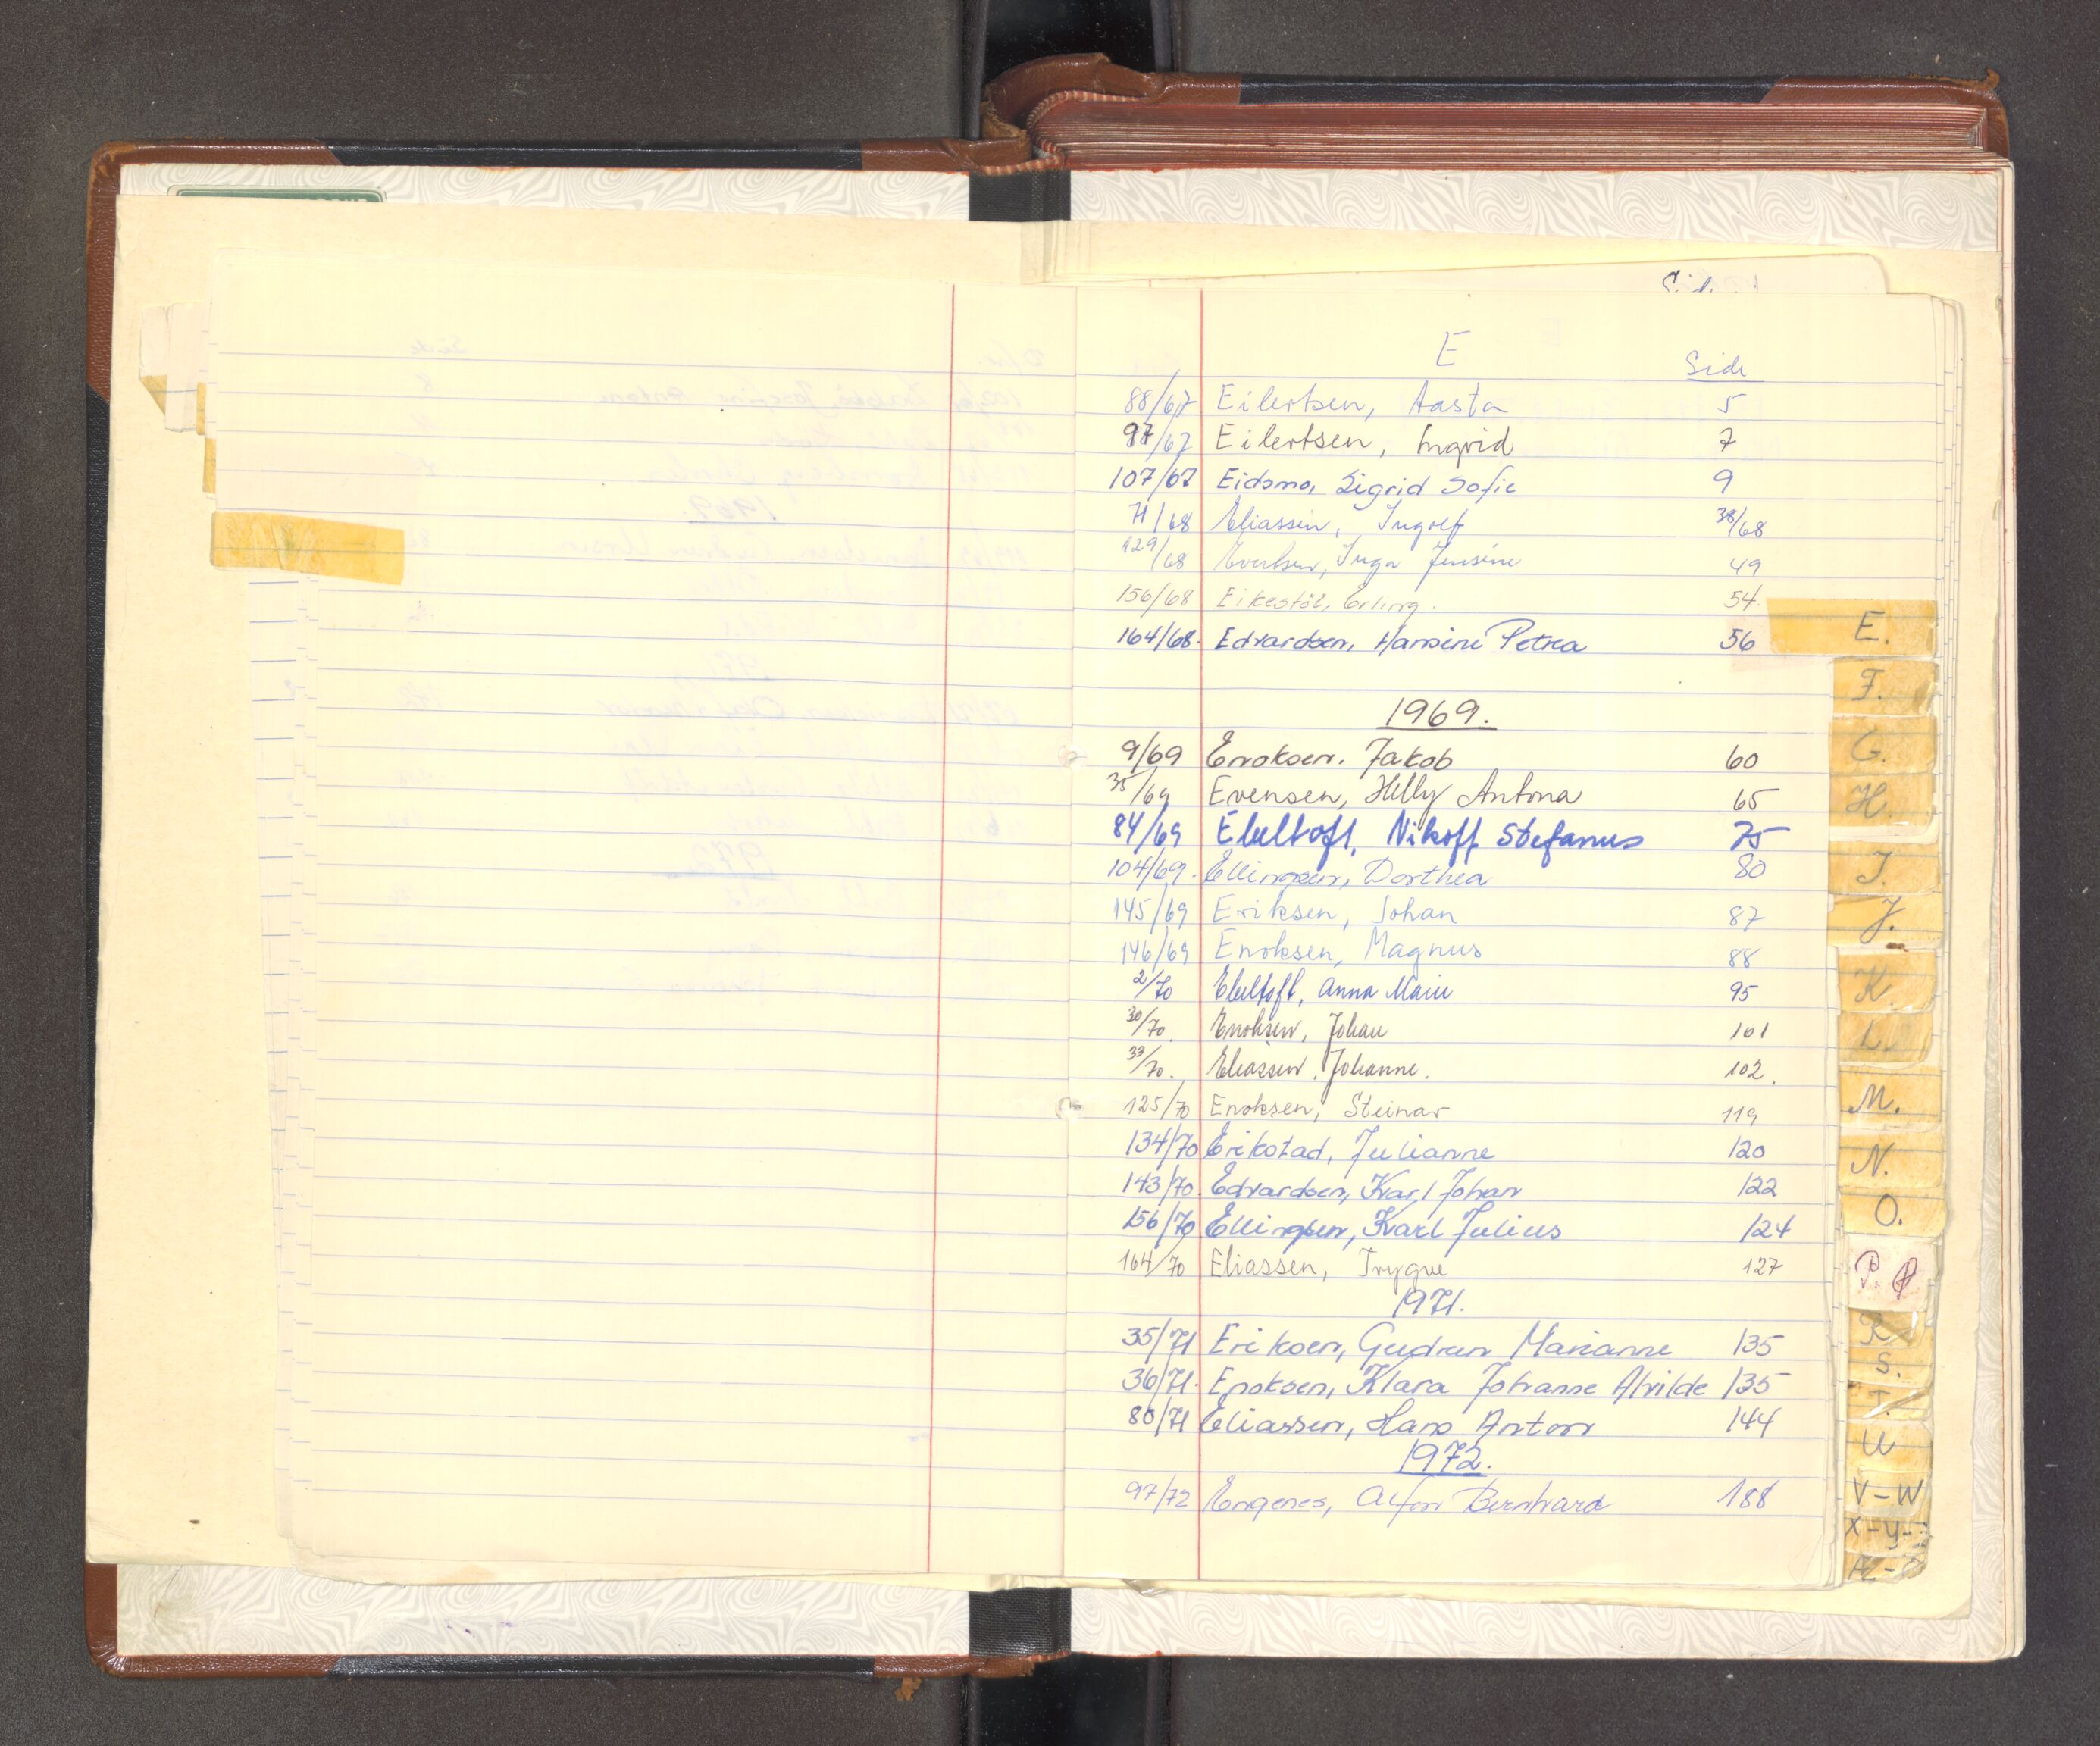 E
Side
88/67 Eilertsen, Aasta 5
97/67 Eilertsen, Ingrid 7
107/67 Eidsmo, Sigrid Sofie 9
71/68 Eliassen, Ingolf 38/68
129/68 Evertsen, Inga Jensine 49
156/68 Eikestöl, Erling. 54
164/68. Edvardsen, Hansine Petrea 56
1969.
9/69 Enoksen. Jakob 60
35/69 Evensen, Helly Antona 65
84/69 Ebeltoft, Nikoff Stefanus 75
104/69. Ellingsen, Dorthea 80
145/69 Eriksen, Johan 87
146/69 Enoksen, Magnus 88
2/70 Ebeltoft, Anna Marie 95
30/70. Enoksen, Johan 101
33/70. Eliassen, Johanne. 102.
125/70 Enoksen, Steinar 119
134/70 Erikstad, Julianne 120
143/70. Edvardsen, Karl Johan 122
156/70 Ellingsen, Karl Julius 124
164/70 Eliassen, Trygve 127
1971.
35/71 Eriksen, Gudrun Marianne 135
36/71. Enoksen, Klara Johanne Alvilde 135
80/71 Eliassen, Hans Anton 144
1972.
97/72 Engenes, Alfon Bernhard 188
E.
F.
G.
H.
I.
J.
K.
L.
M.
N.
O.
P.
R
S.
T.
U
V-W
X-Y-
Æ-Ø